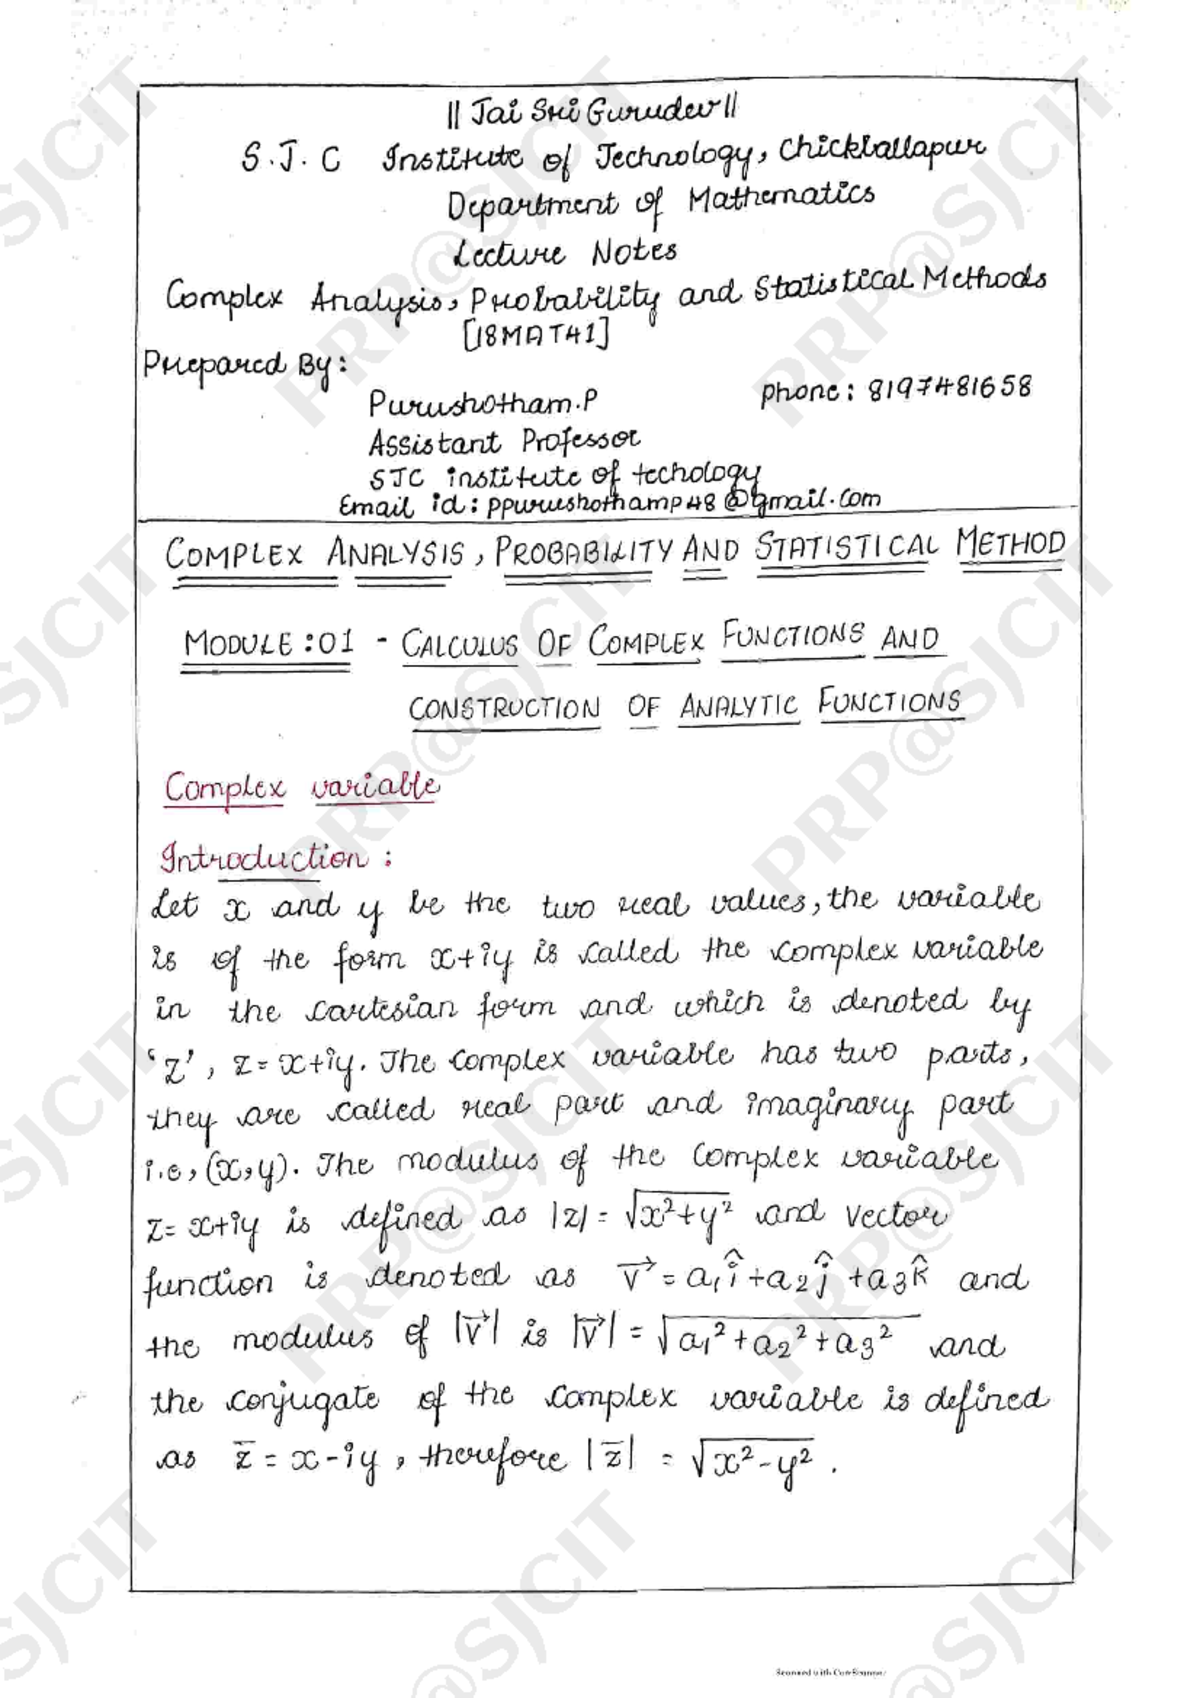 || Jai Sri Gurudev ||
S.J.C Institute of Technology, Chickballapur
Department of Mathematics
Lecture Notes
Complex Analysis, Probability and Statistical Methods
[18MAT41]
Prepared By:
Purushotham.P
Phone: 8197481658
Assistant Professor
SJC institute of techology
Email id: ppurushothamp48@gmail.com
COMPLEX ANALYSIS, PROBABILITY AND STATISTICAL METHOD
MODULE:01 - CALCULUS OF COMPLEX FUNCTIONS AND
CONSTRUCTION OF ANALYTIC FUNCTIONS
Complex variable
Introduction:
Let x and y be the two real values, the variable
is of the form x+iy is called the complex variable
in the cartesian form and which is denoted by
'z', z=x+iy. The complex variable has two parts,
they are called real part and imaginary part
i.e, (x,y). The modulus of the complex variable
z=x+iy is defined as |z| = √x²+y² and vector
function is denoted as V⃗ = a₁î+a₂ĵ+a₃k̂ and
the modulus of |V⃗| is |V⃗| = √a₁²+a₂²+a₃² and
the conjugate of the complex variable is defined
as z̅ = x-iy, therefore |z̅| = √x²-y².
PRP@SJCIT
Scanned with CamScanner